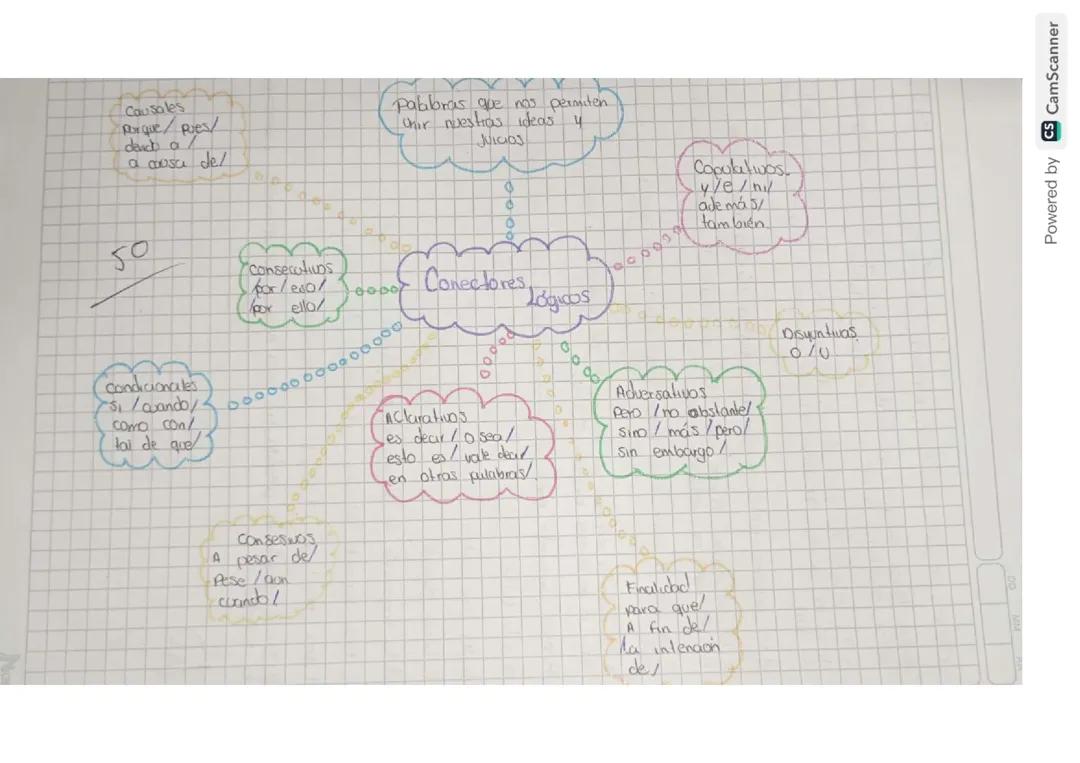 Causales
porque/ pues/
dendo a /
a causa de/
Palabras que nos permiten
unir nuestras ideas y
Juicios
Copulativos.
y/e/ni/
además/
también.
50
Consecutivos
por/eso/
por ello/
Conectores
Lógicos
Disyuntivas.
o/u
Condicionales
si /cuando/
como con/
tal de que/
Aclarativos
es decir/ o sea/
esto es/ vale decir/
en otras palabras/
Adversativos
Pero /no obstante/
sino / más /pero/
sin embargo/
Consesivos
A pesar de/
Pese /aun
cuando/
Finalidad
para que/
A fin de/
la intención
de/
Powered by CS CamScanner